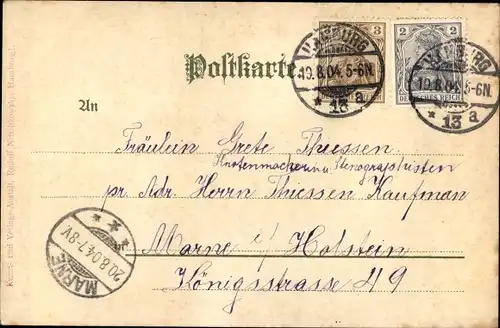 Postkarte
3
2
DEUTSCHES REICH
HAMBURG
19.8.04.5-6N.
* 13 a
HAMBURG
19.8.04.5-6N.
* 13 a
An
Fräulein Grete Thiessen
u. Stenographisten
pr. Adr. Herrn Thiessen Kaufman
Marne i/ Holstein
Königsstrasse 49
MARNE
20.8.04.7-8V
Kunst- und Verlags-Anstalt, Hamburg.